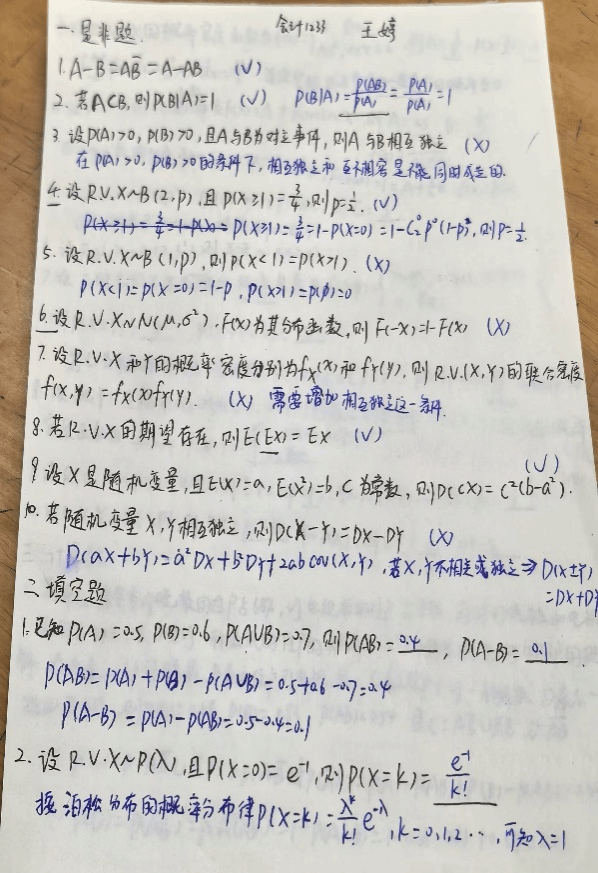 会计1233 王婷
一.是非题.
1. A-B=AB̅=A-AB (√)
2. 若A⊂B, 则P(B|A)=1 (√) P(B|A)=P(AB)/P(A)=P(A)/P(A)=1
3. 设P(A)>0, P(B)>0, 且A与B为对立事件, 则A与B相互独立 (×)
在P(A)>0, P(B)>0的条件下, 相互独立和互不相容是不能同时成立的.
4. 设R.V.X~B(2,p), 且P(X≥1)=3/4, 则p=1/2. (√)
P(X≥1)=3/4=1-P(X= P(X≥1)=3/4=1-P(X=0)=1-C₂⁰p⁰(1-p)², 则p=1/2.
5. 设R.V.X~B(1,p), 则P(X<1)=P(X>1). (×)
P(X<1)=P(X=0)=1-p, P(X>1)=P(∅)=0
6. 设R.V.X~N(μ,σ²), F(x)为其分布函数, 则F(-x)=1-F(x) (×)
7. 设R.V.X和Y的概率密度分别为fx(x)和fY(y), 则R.V.(X,Y)的联合密度
f(x,y)=fx(x)fY(y). (×) 需要增加相互独立这一条件.
8. 若R.V.X的期望存在, 则E(EX)=EX (√)
9. 设X是随机变量, 且E(X)=a, E(X²)=b, C为常数, 则D(CX)=C²(b-a²). (√)
10. 若随机变量X,Y相互独立, 则D(X-Y)=DX-DY (×)
D(aX+bY)=a²DX+b²DY+2abcov(X,Y), 若X,Y不相关或独立⇒D(X±Y)
=DX+DY
二.填空题
1. 已知P(A)=0.5, P(B)=0.6, P(A∪B)=0.7, 则P(AB)=0.4, P(A-B)=0.1.
P(AB)=P(A)+P(B)-P(A∪B)=0.5+0.6-0.7=0.4
P(A-B)=P(A)-P(AB)=0.5-0.4=0.1
2. 设R.V.X~P(λ), 且P(X=0)=e⁻¹, 则P(X=k)=e⁻¹/k!
按泊松分布的概率分布律P(X=k)=λᵏ/k! e^-λ, k=0,1,2..., 可知λ=1